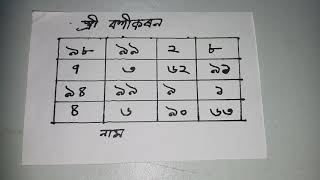 স্ত্রী বশীকরন
৯৮ ৯৯ ২ ৮
৭ ৩ ৬২
৯৪ ৯৯ ৯ ১
৪ ৬ ৯০ ৬৩
নাম